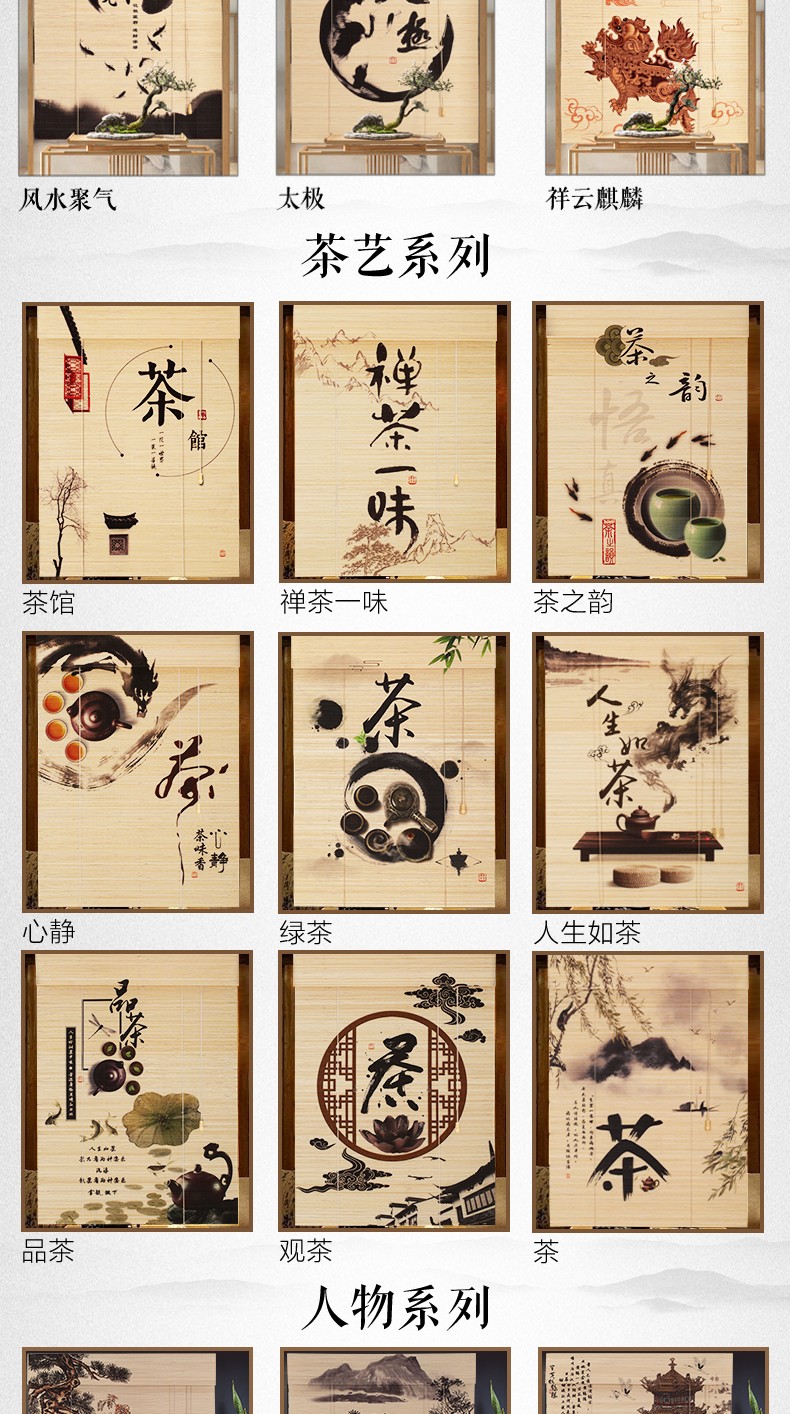 極
风水聚气
太极
祥云麒麟
茶艺系列
茶
館
禅
茶
一
味
茶
之
韵
悟
真
茶之韵
茶馆
禅茶一味
茶之韵
茶
心静
茶味香
茶
人生如茶
心静
绿茶
人生如茶
品茶
人生如茶
沉浮
拿起、放下
茶
茶
品茶
观茶
茶
人物系列